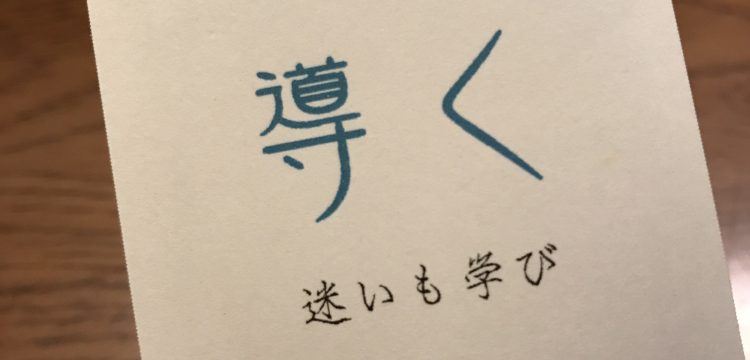 導く
迷いも学び